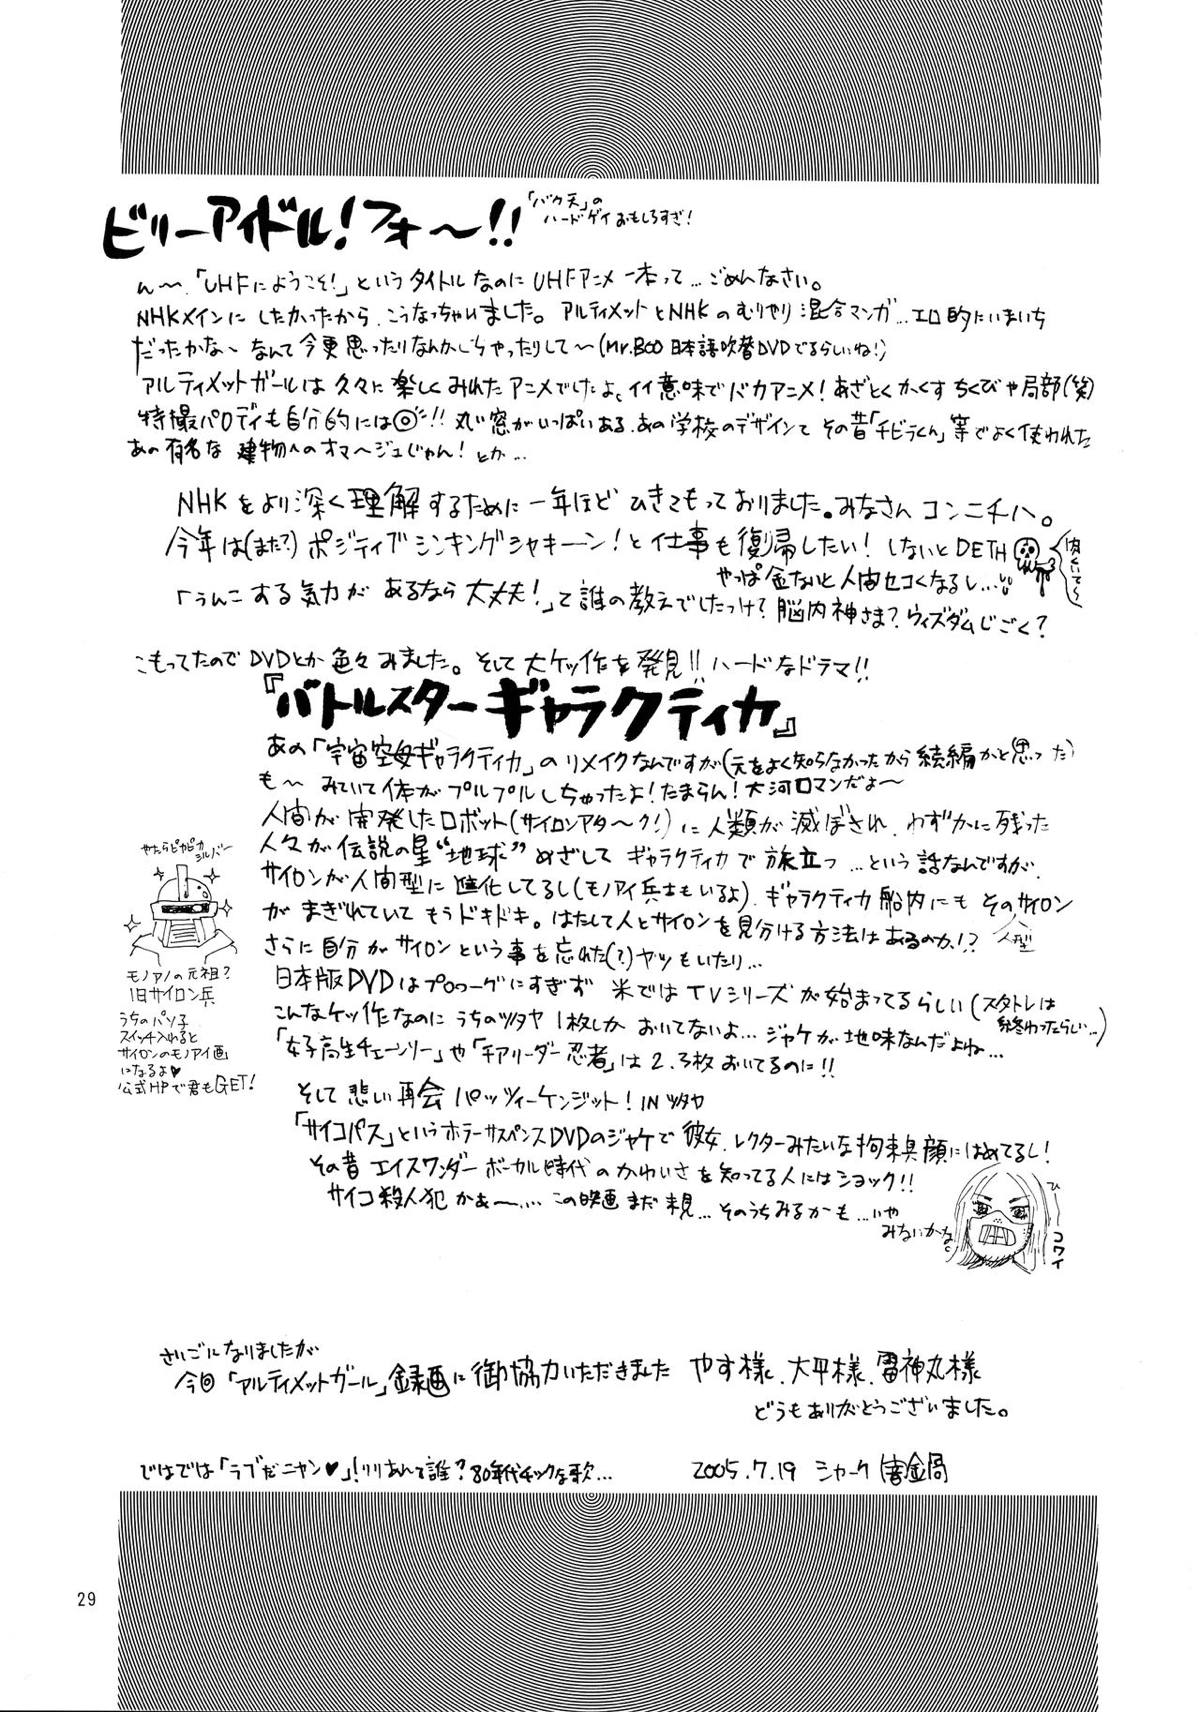 ビリーアイドル!フォ〜!!
「バク天」の
ハードゲイおもしろすぎ!
ん〜、「UHFにようこそ!」というタイトルなのにUHFアニメ一本って…ごめんなさい。
NHKメインにしたかったから、こうなっちゃいました。アルティメットとNHKのむりやり混合マンガ…エロ的にいまいち
だったかな〜なんて今更思ったりなんかしちゃったりして〜(Mr.BOO日本語吹替DVDでるらしいね!)
アルティメットガールは久々に楽しくみれたアニメでしたよ。イイ意味でバカアニメ!あざとくかくすちくびや局部(笑)
特撮パロディも自分的には◎!!丸い窓がいっぱいある、あの学校のデザインて その昔「チビラくん」等でよく使われた
あの有名な建物へのオマージュじゃん!とか…
NHKをより深く理解するために一年ほどひきこもっておりました。みなさんコンニチハ。
今年は(また?)ポジティブシンキングシャキーン!と仕事も復帰したい!しないとDETH
肉くいて〜
やっぱ金ないと人間セコくなるし…
「うんこする気力があるなら大丈夫!」て誰の教えでしたっけ?脳内神さま?ウィズダムじごく?
こもってたのでDVDとか色々みました。そして大ケッ作を発見!!ハードなドラマ!!
『バトルスターギャラクティカ』
あの「宇宙空母ギャラクティカ」のリメイクなんですが(元をよく知らなかったから続編かと思った)
も〜みていて体がプルプルしちゃったよ!たまらん!大河ロマンだよ〜
人間が開発したロボット(サイロンアタ〜ク!)に人類が滅ぼされ、わずかに残った
人々が伝説の星“地球”めざしてギャラクティカで旅立つ…という話なんですが、
サイロンが人間型に進化してるし(モノアイ兵士もいるよ)、ギャラクティカ船内にもそのサイロン
人型
がまぎれていてもうドキドキ。はたして人とサイロンを見分ける方法はあるのか!?
さらに自分がサイロンという事を忘れた(?)ヤツもいたり…
日本版DVDはプロローグにすぎず 米ではTVシリーズが始まってるらしい(スタトレは
終わったらしい…)
こんなケッ作なのにうちのツタヤ1枚しかおいてないよ…ジャケが地味なんだよね…
「女子高生チェーンソー」や「チアリーダー忍者」は2、3枚おいてるのに!!
やたらピカピカ
シルバー
モノアイの元祖?
旧サイロン兵
うちのパソ子
スイッチ入れると
サイロンのモノアイ画
になるよ♥
公式HPで君もGET!
そして悲しい再会パッツィーケンジット!INツタヤ
「サイコパス」というホラーサスペンスDVDのジャケで彼女、レクターみたいな拘束具顔にはめてるし!
その昔エイスワンダーボーカル時代のかわいさを知ってる人にはショック!!
サイコ殺人犯かぁ〜…この映画まだ未見…そのうちみるかも…いや
みないかな。
ひ〜
コワイ
さいごになりましたが
今回「アルティメットガール」録画に御協力いただきました やす様、大平様、雷神丸様
どうもありがとうございました。
ではでは「ラブだニャン♥」!リリあんて誰?80年代チックな歌…
2005.7.19 シャーク
29